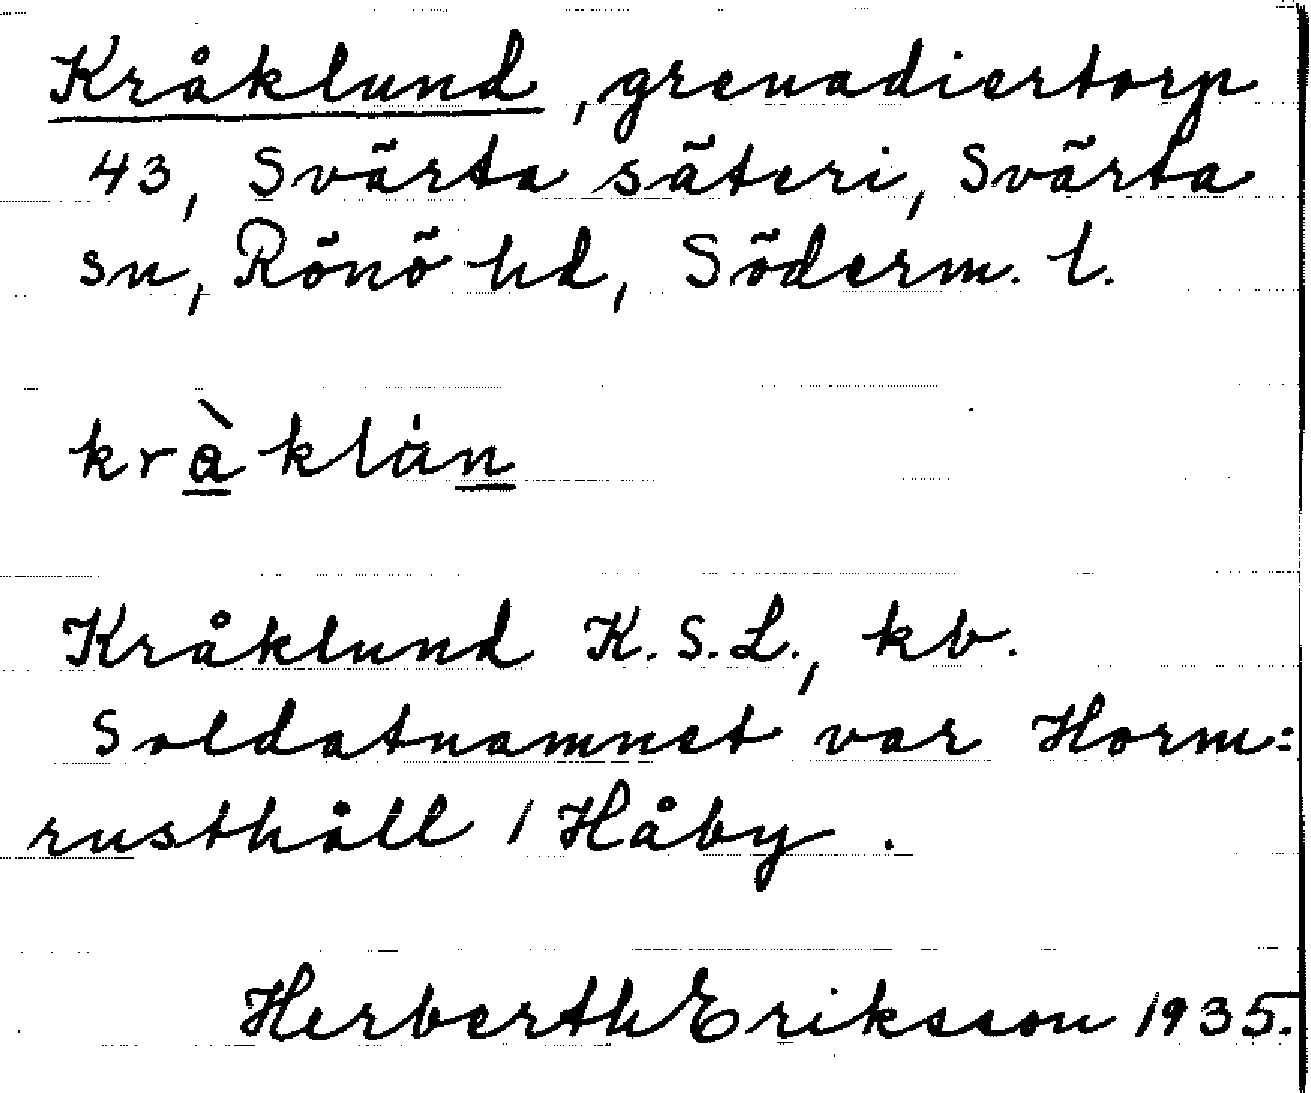 Kråklund, grenadiertorp
43, Svärta säteri, Svärta
sn, Rönö hd, Söderm. l.
kràklȧn
Kråklund K.S.L., kb.
Soldatnamnet var Horm:
rusthåll 1 Håby.
Herberth Eriksson 1935.